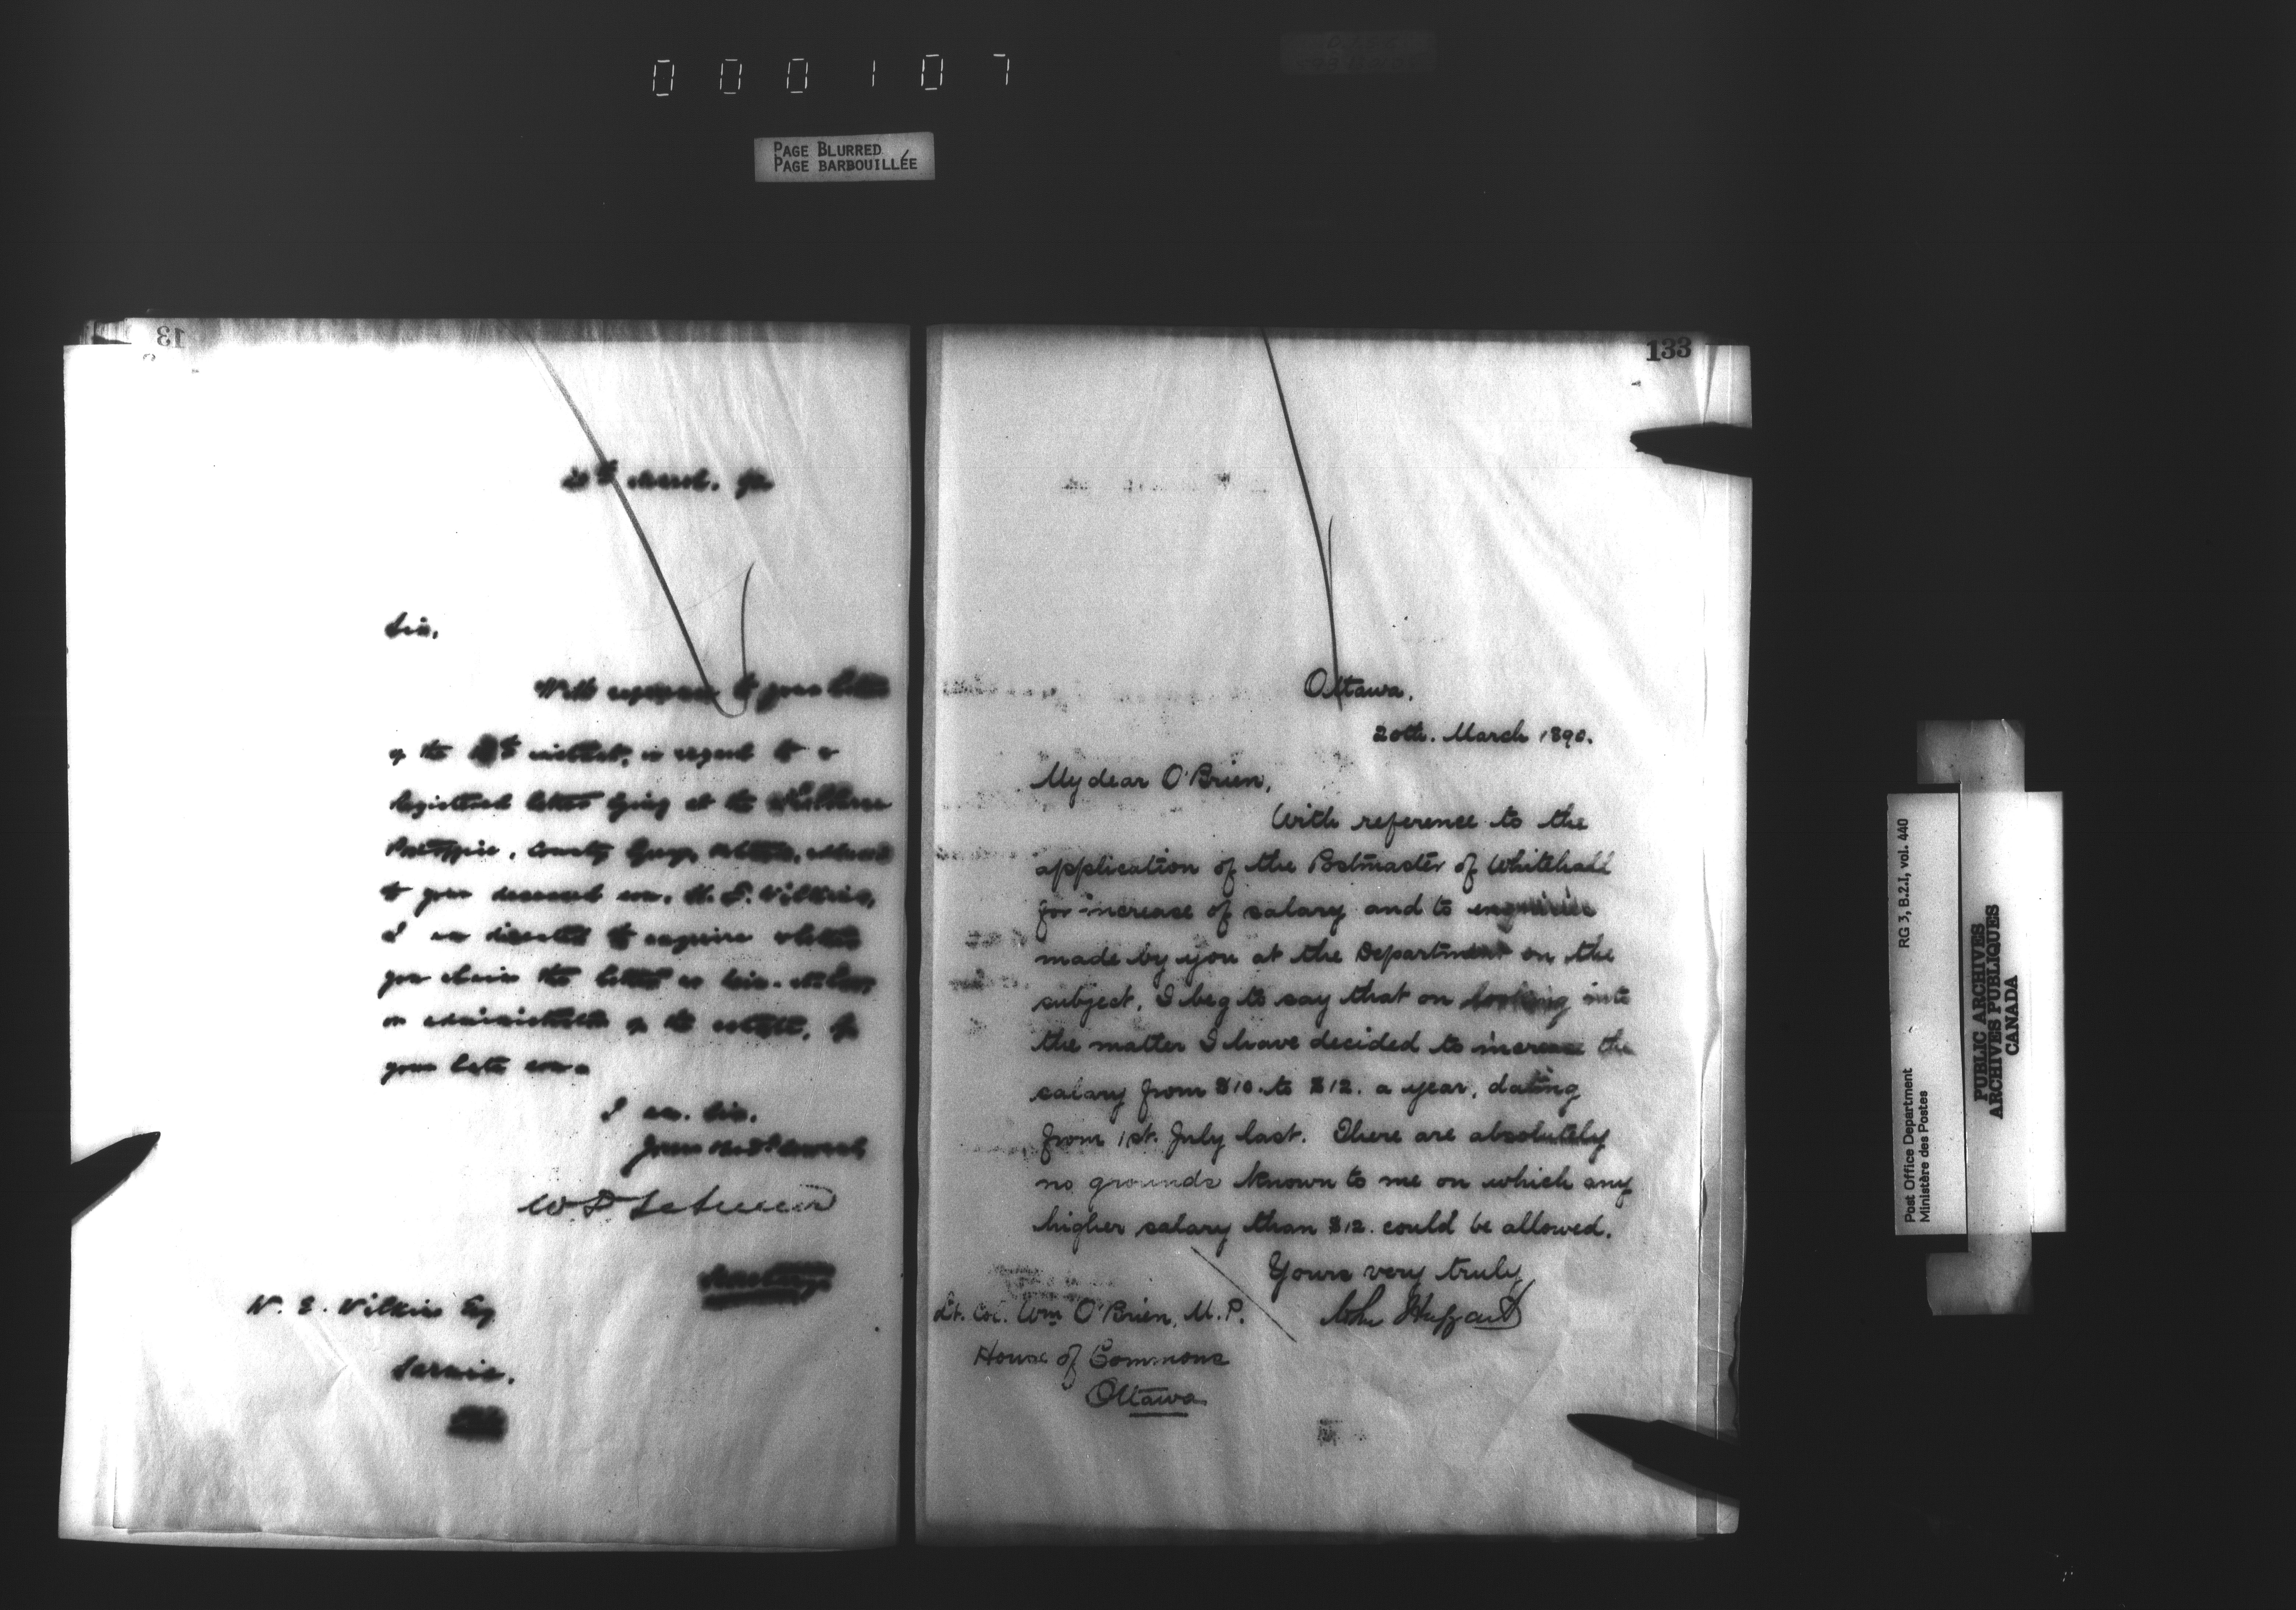 000107
PAGE BLURRED
PAGE BARBOUILLÉE
13
20th March. 90
Sir,
With reference to your letter
of the instant, in regard to a
Registered letter lying at the
Postoffice, County Grey,
to your deceased son,
I am directed to enquire whether
you claim the letter as
or administrator of the estate, of
your late son.
I am. Sir,
Your Obedt Servant
Secretary
W. E. Wilkins Esq
Sarnia.
133
Ottawa,
20th. March 1890.
My dear O'Brien,
With reference to the
application of the Postmaster of Whitehall
for increase of salary and to enquiries
made by you at the Department on the
subject, I beg to say that on looking into
the matter I have decided to increase the
salary from $10. to $12. a year, dating
from 1st. July last. There are absolutely
no grounds known to me on which any
higher salary than $12. could be allowed.
Yours very truly
John Haggart
Lt. Col. Wm O'Brien, M.P.
House of Commons
Ottawa
RG 3, B.2.I, vol. 440
Post Office Department
Ministère des Postes
PUBLIC ARCHIVES
ARCHIVES PUBLIQUES
CANADA